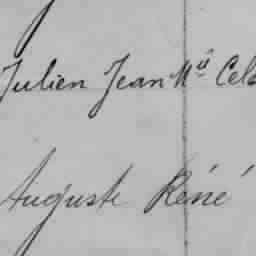 Julien Jean Mie Cels
Auguste Réné